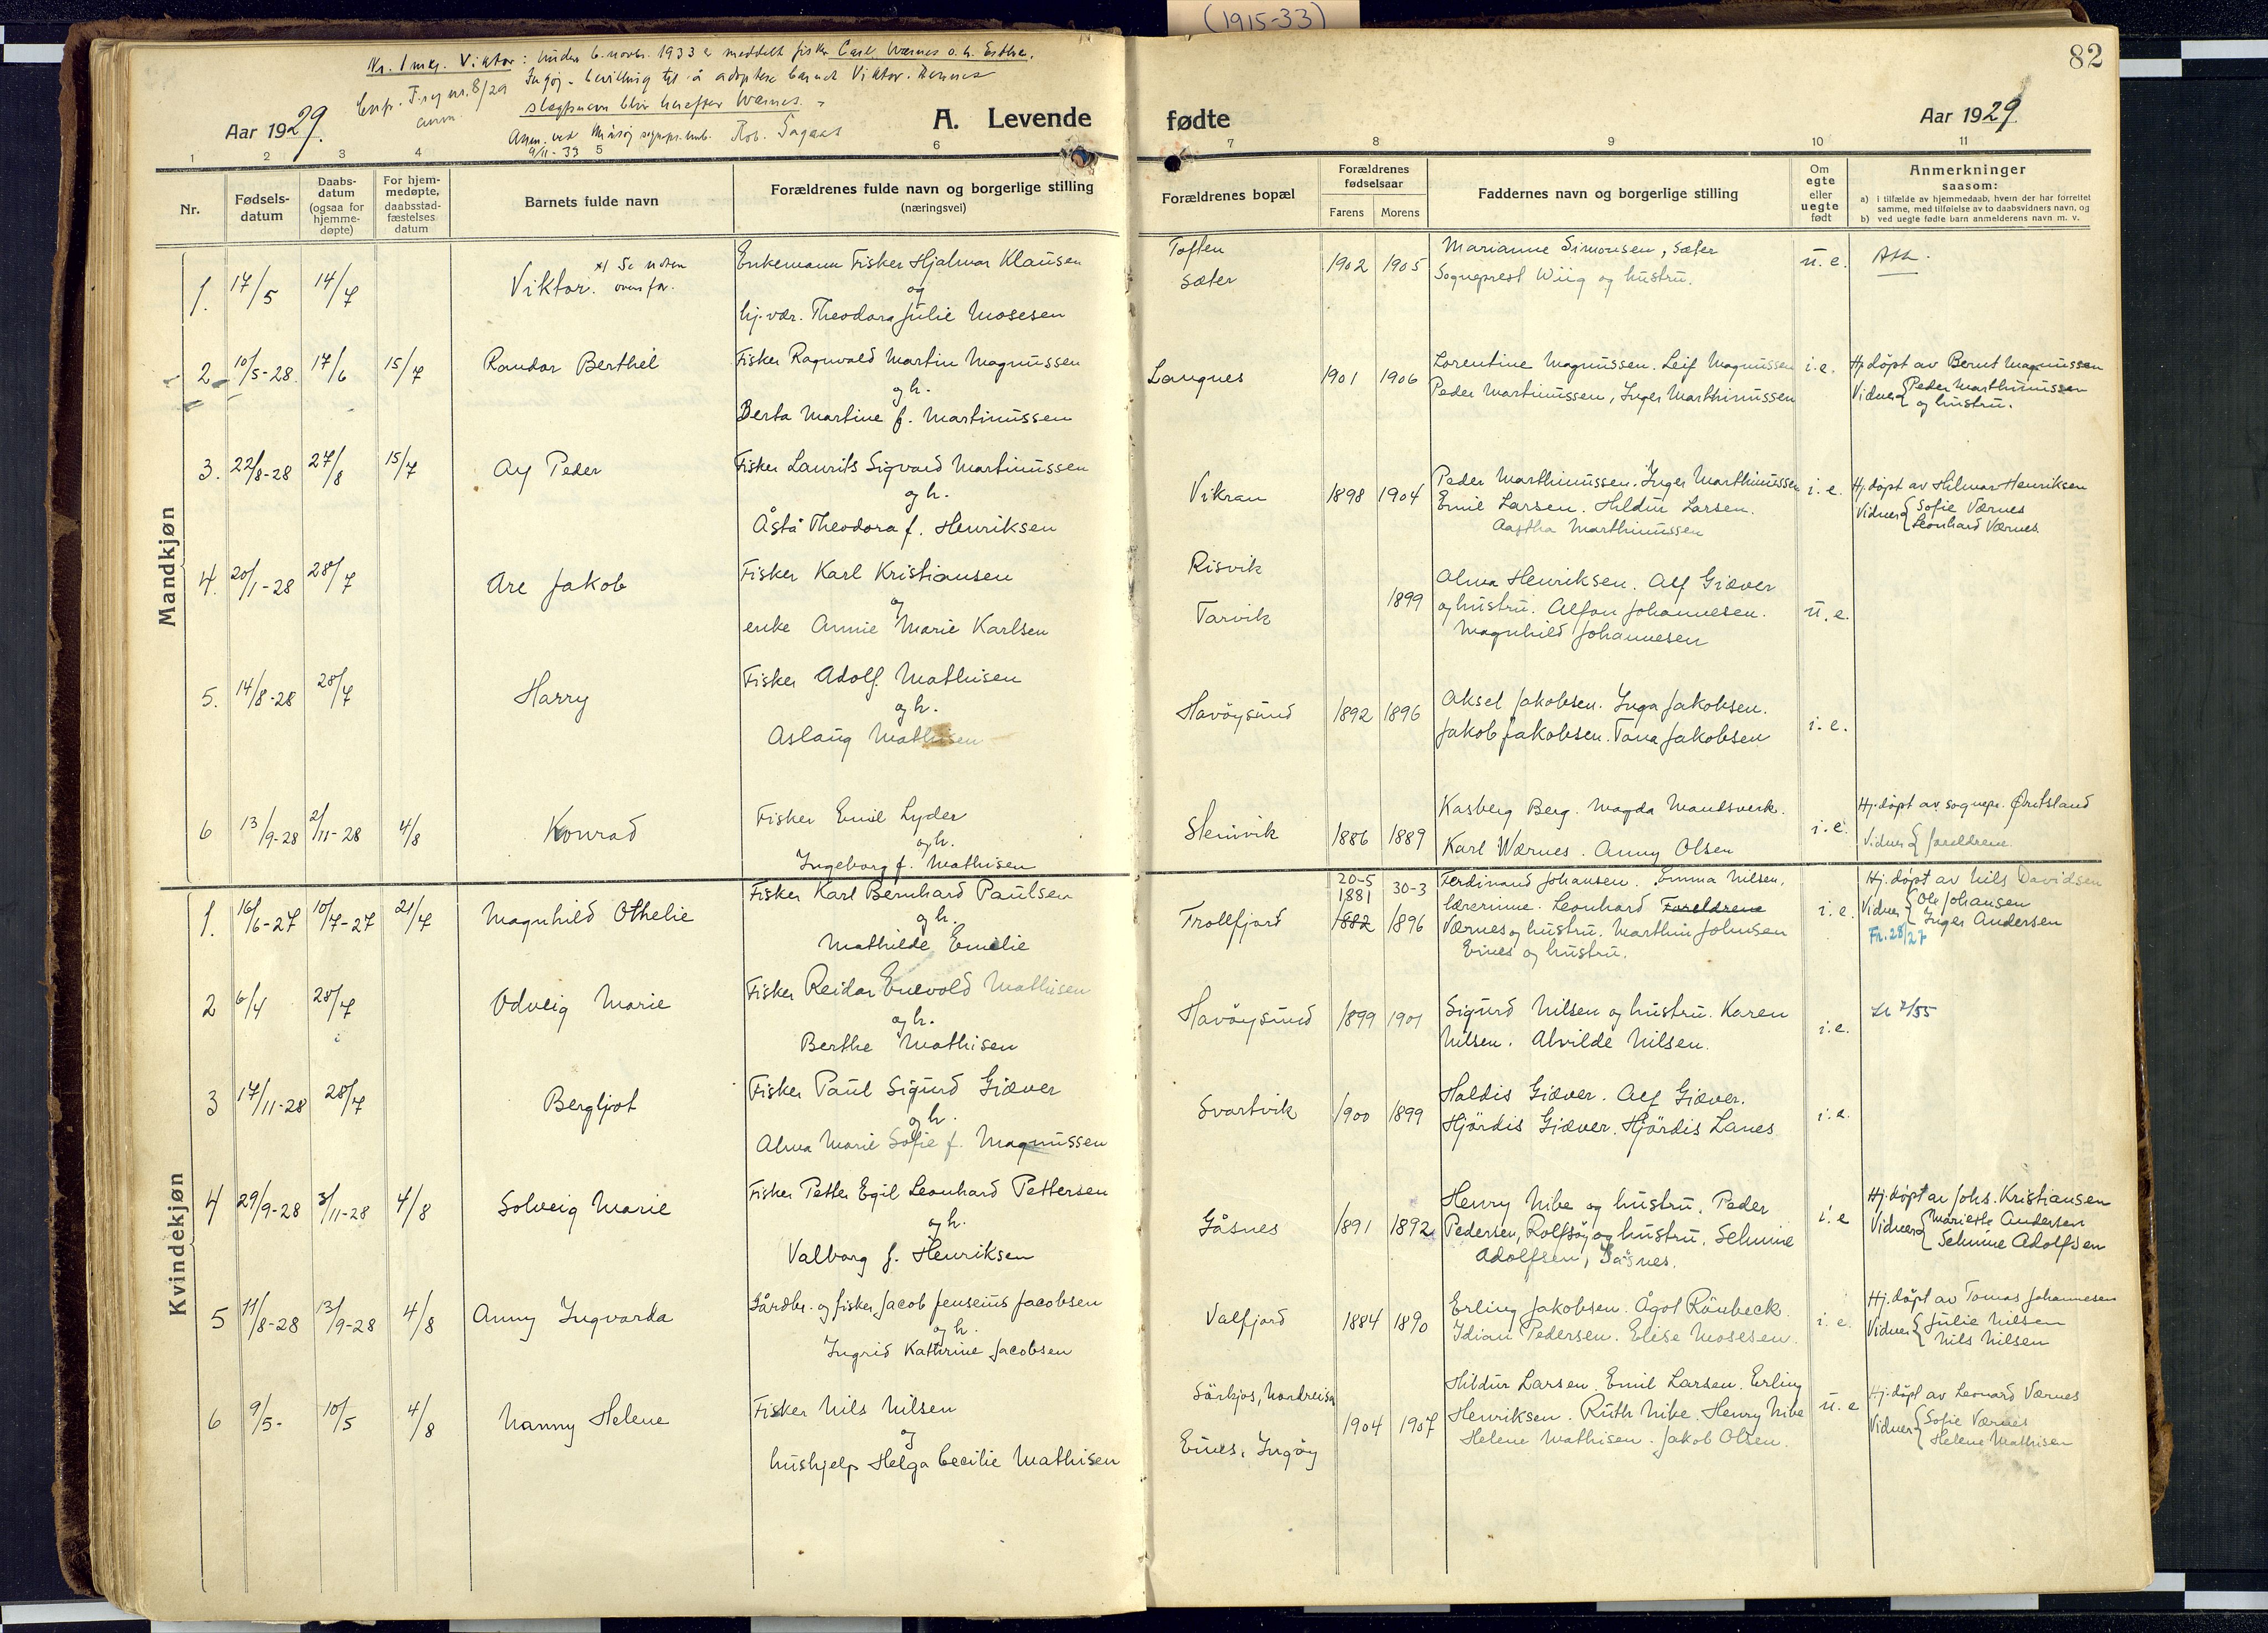 (1915-33)
82
Nr. 1 mkj. Viktor: Under 6. novbr. 1933 er meddelt fisker Carl Wærnes o.h. Esther,
Ingøy - bevilling til å adoptere barnet Viktor. Barnets
slegtsnavn blir herefter Wærnes.
Anm. ved Måsøy sognepr.emb. Rob.
9/11-33
Aar 1929.
A. Levende
fødte
Aar 1929
1 2 3 4 5 6 7 8 9 10 11
Nr.
Fødsels-
datum
Daabs-
datum
(ogsaa for
hjemme-
døpte)
For hjem-
medøpte,
daabsstad-
fæstelses
datum
Barnets fulde navn
Forældrenes fulde navn og borgerlige stilling
(næringsvei)
Forældrenes bopæl
Forældrenes
fødselsaar
Farens Morens
Faddernes navn og borgerlige stilling
Om
egte
eller
uegte
født
Anmerkninger
saasom:
a) i tilfælde av hjemmedaab, hvem der har forrettet
samme, med tilføielse av to daabsvidners navn, og
b) ved uegte fødte barn anmelderens navn m. v.
Mandkjøn
1. 17/5 14/7 Viktor. x) Se noten
ovenfor.
Enkemann Fisker Hjalmar Klausen
og
hj.vær. Theodora Julie Mosesen
Toften
Sæter
1902 1905
Marianne Simonsen, Sæter
Sogneprest Wiig og hustru.
u.e.
2 10/5-28 17/6 15/7 Randor Berthel
Fisker Ragnvald Martin Magnussen
og h.
Berta Martine f. Martinussen
Langnes 1901 1906
Lorentine Magnussen. Leif Magnussen
Peder Martinussen, Inger Marthinussen
i.e.
Hj.døpt av Bernt Magnussen
Vidner { Peder Marthinussen
og hustru.
3. 22/8-28 27/8 15/7 Alf Peder
Fisker Laurits Sigvard Martinussen
og h.
Åsta Theodora f. Henriksen
Vikran 1898 1904
Peder Marthinussen. Inger Marthinussen
Emil Larsen. Hildur Larsen.
Aastha Marthinussen
i.e.
Hj.døpt av Hilmar Henriksen
Vidner { Sofie Værnes
Leonhard Værnes.
4. 20/1-28 28/7 Are Jakob
Fisker Karl Kristiansen
og
enke Annie Marie Karlsen
Risvik
Tarvik
1899
Alma Henriksen. Alf Giæver
og hustru. Alfon Johannesen.
Magnhild Johannesen
u.e.
5. 14/8-28 28/7 Harry
Fisker Adolf Mathisen
og h.
Aslaug Mathisen
Havöysund 1892 1896
Aksel Jakobsen. Inga Jakobsen.
Jakob Jakobsen. Tona Jakobsen
i.e.
6 13/9-28 2/11-28 4/8 Konrad
Fisker Emil Lyder
og h.
Ingeborg f. Mathisen
Slemvik 1886 1889
Kasberg Berg. Magda Mandsverk.
Karl Wærnes. Anny Olsen
i.e.
Hj.døpt av sognepr. Øritsland
Vidner { foreldrene.
Kvindekjøn
1. 16/6-27 10/7-27 21/7 Magnhild Othelie
Fisker Karl Bernhard Paulsen
og h.
Mathilde Emilie
Trollfjord
20-5
1881
1882
30-3
1896
Ferdinand Johansen. Emma Nilsen,
lærerinne. Leonhard Foreldrene
Værnes og hustru. Marthin Johnsen
Eines og hustru.
i.e.
Hj.døpt av Nils Davidsen
Vidner { Ole Johansen
Inger Andersen
Fr. 28/27
2 6/4 28/7 Odveig Marie
Fisker Reidar Enevold Mathisen
og h.
Berthe Mathisen
Havöysund 1899 1901
Sigurd Nilsen og hustru. Karen
Nilsen. Alvilde Nilsen.
i.e.
3 17/11-28 28/7 Bergljot
Fisker Paul Sigurd Giæver
og h
Alma Marie Sofie f. Magnussen
Svartvik 1900 1899
Haldis Giæver. Alf Giæver.
Hjördis Giæver. Hjördis Lanes
i.e.
4 29/9-28 3/11-28 4/8 Solveig Marie
Fisker Petter Egil Leonhard Pettersen
og h.
Valborg f. Henriksen
Gåsnes 1891 1892
Henry Nibe og hustru. Peder
Pedersen, Rolfsøy og hustru. Selmine
Adolfsen, Gåsnes.
i.e
Hj.døpt av Johs. Kristiansen
Vidner { Marie Andersen
Selmine Adolfsen
5 11/8-28 13/9-28 4/8 Anny Ingvarda
Gårdbr. og fisker Jacob Jensenius Jacobsen
og h.
Ingrid Kathrine Jacobsen
Valfjord 1884 1890
Erling Jakobsen. Ågot Rönbeck.
Idian Pedersen. Elise Mosesen.
i.e.
Hj.døpt av Tomas Johannesen
Vidner { Julie Nilsen
Nils Nilsen
6 9/5- 10/5 4/8 Nanny Helene
Fisker Nils Nilsen
og
hushjelp Helga Cecilie Mathisen
Sörkjos, Nordreisa
Eines, Ingöy
1904 1907
Hildur Larsen. Emil Larsen. Erling
Henriksen. Ruth Nibe. Henry Nibe
Helene Mathisen. Jakob Olsen.
u.e
Hj.døpt av Leonard Værnes
Vidner { Sofie Værnes
Helene Mathisen